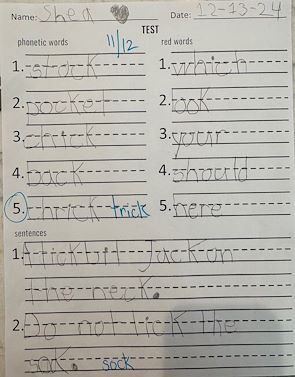 Name: Shea Date: 12-13-24
TEST
phonetic words 11/12 red words
1. stuck 1. which
2. pocket 2. look
3. chick 3. your
4. back 4. should
5. chrick trick 5. here
sentences
1. A tick bit Jack on
the neck.
2. Do not lick the
sok. sock